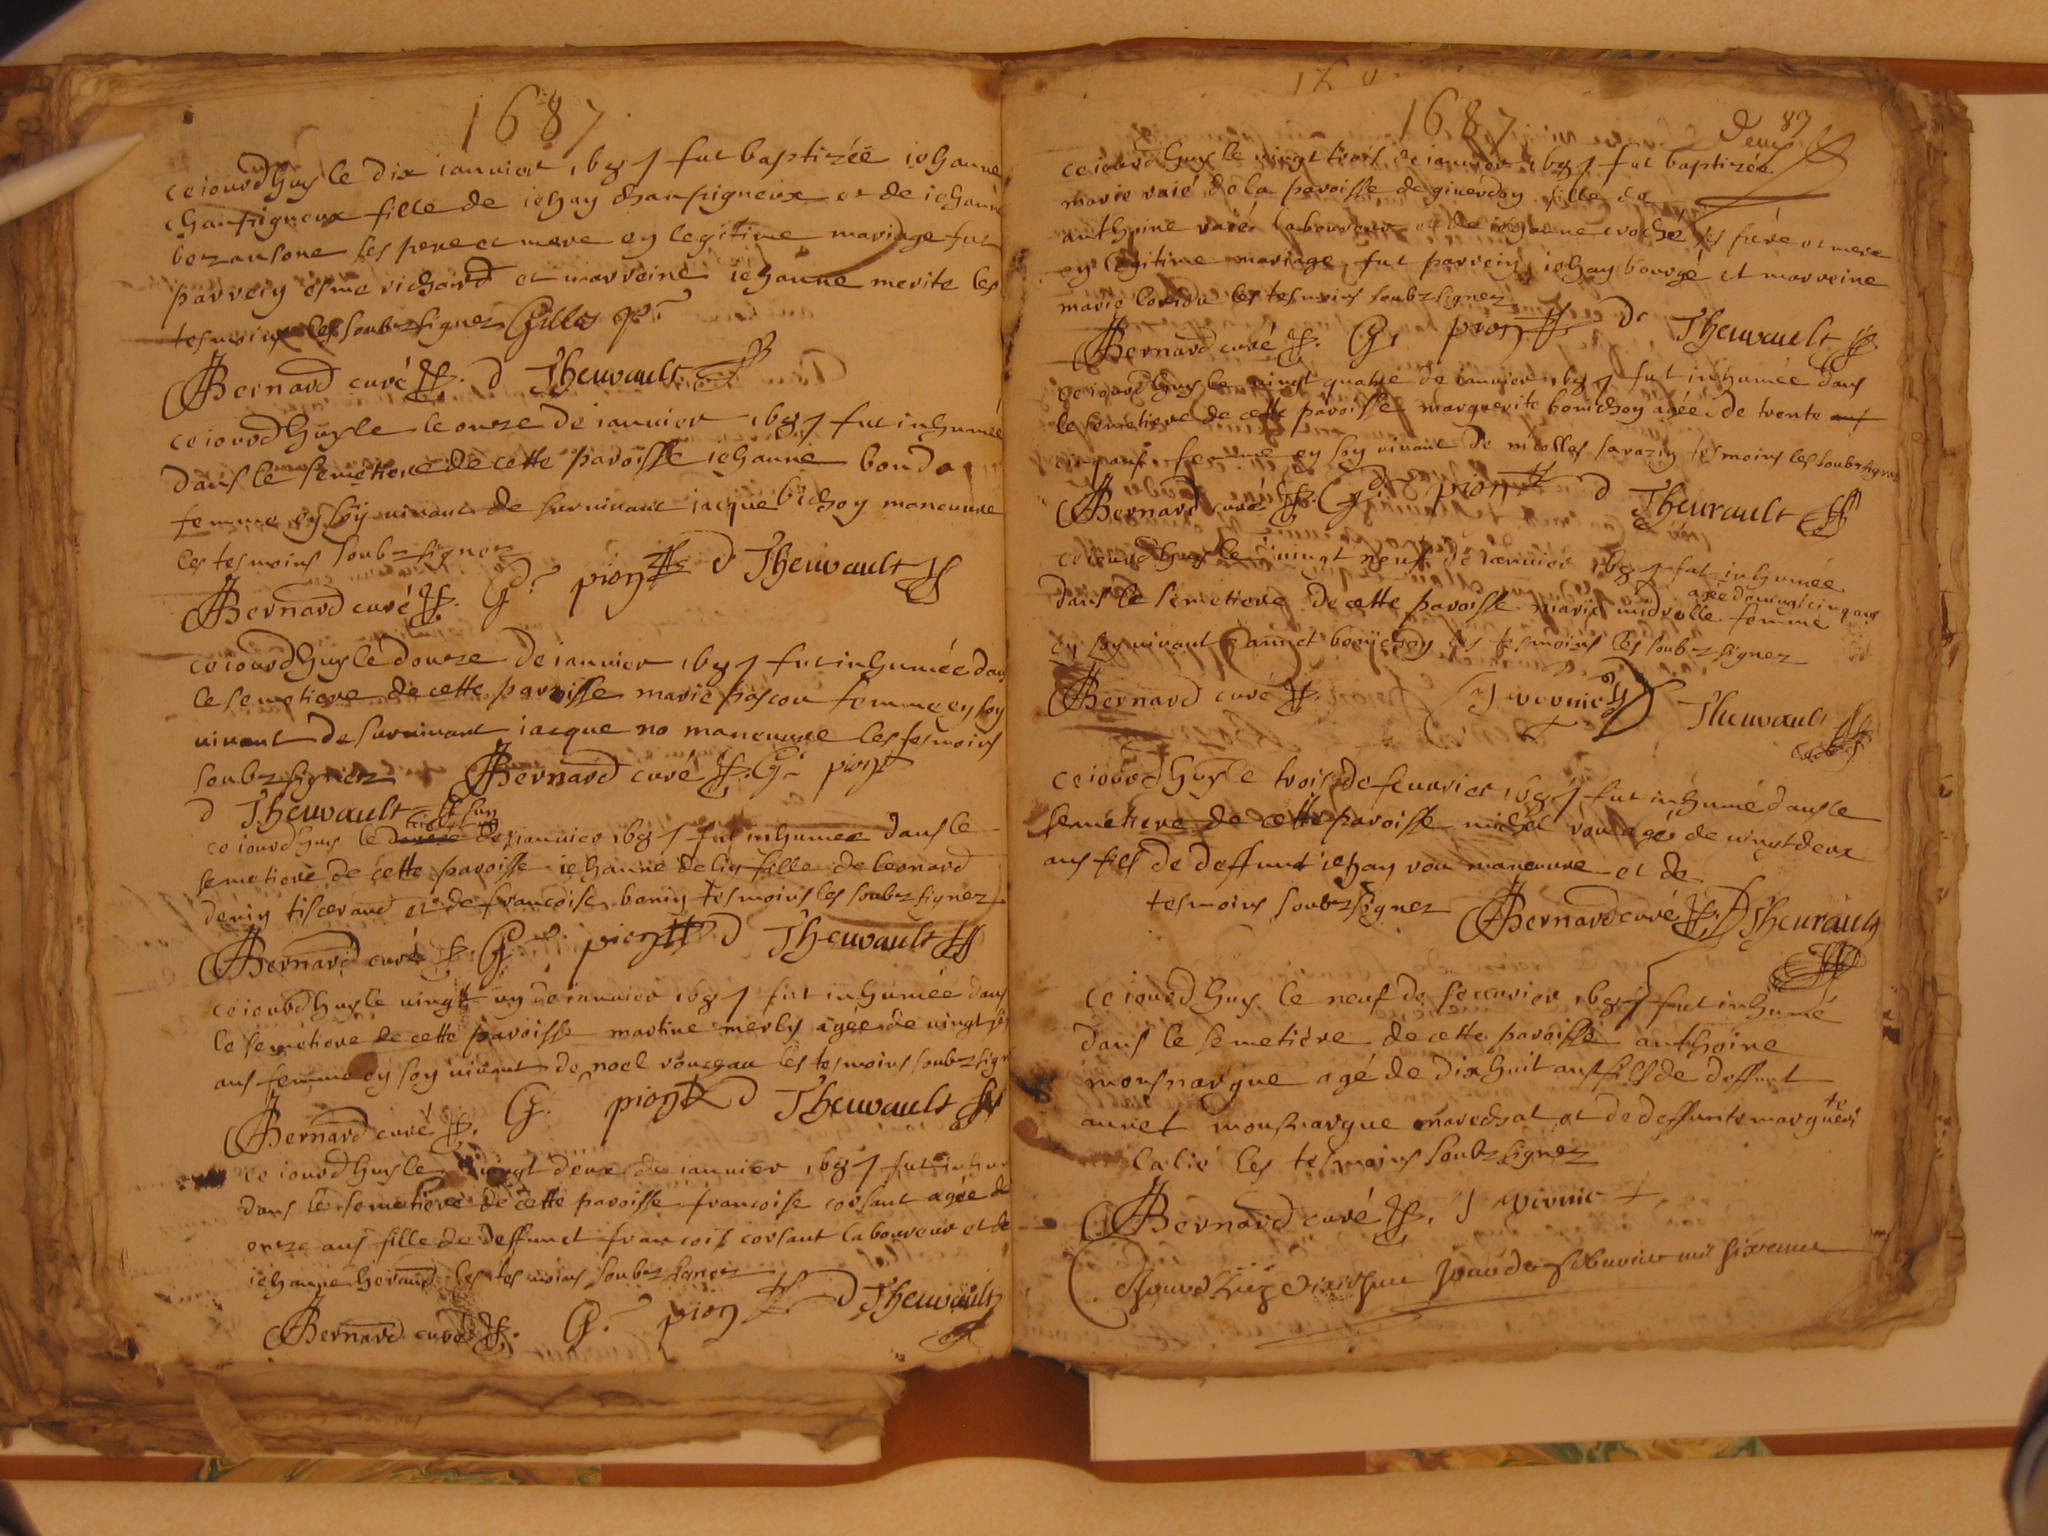 1687
ce iourdhuy le dix ianvier 1687 fut baptizée iehanne
champigneux fille de iehan champigneux et de iehanne
bezansone ses pere et mere en legitime mariage fut
parrein esme richard et marreine iehanne merite les
tesmoins les soubz signez Gilles
Bernard curé d Theuvault
ce iourdhuy le le onze de ianvier 1687 fut inhumée
dans le semetiere de cette paroisse iehanne bonda
femme en son vivant de survivant iacque bichon maneuvre
les tesmoins soubz signez
Bernard curé G pion d Theuvault
ce iourdhuy le douze de ianvier 1687 fut inhumée dans
le semetiere de cette paroisse marie pascou femme en son
vivant de survivant iacque no maneuvre les tesmoins
soubz signez Bernard curé G pion
d Theuvault
ce iourdhuy le de ianvier 1687 fut inhumee dans le
semetiere de cette paroisse iehanne fille de leonard
denin tisserand et de francoise bonin tesmoins les soubz signez
Bernard curé G pion d Theuvault
ce iourdhuy le vingt un de ianvier 1687 fut inhumée dans
le semetiere de cette paroisse martine merlin agée de vingt
ans femme en son vivant de noel rouceau les tesmoins soubz sign
Bernard curé G. pion d Theuvault
ce iourdhuy le vingt deux de ianvier 1687 fut inhu
dans le semetiere de cette paroisse francoise corsant agée de
onze ans fille de deffunct francois corsant laboureur et de
iehanne heraud les tesmoins soubz signez
Bernard curé G. pion d Theuvault
1687
87
deux
ce iourdhuy le vingt trois de ianvier 1687 fut baptizée
marie vaié de la paroisse de giverdon fille de
anthoine vaié laboureur et de iehanne roche ses pére et mere
en legitime mariage fut parrein iehan bourgé et marreine
marie les tesmoins soubz signez
Bernard curé G. pion d Theuvault
ce iourdhuy le vingt quatre de ianvier 1687 fut inhumée dans
le semetiere de cette paroisse marguerite bouichon agée de trente ans
cinq ans femme en son vivant de nicolles sarazin tesmoins les soubz signez
Bernard curé G. pion d Theuvault
ce iourdhuy le vingt neuf de ianvier 1687 fut inhumée
agée de vingt cinq ans
dans le semetiere de cette paroisse marie femme
en son vivant d annet bouichon les tesmoins les soubz signez
Bernard curé J vernie Theuvault
ce iourdhuy le trois de feuvrier 1687 fut inhumé dans le
semetiere de cette paroisse michel rou agé de vingt deux
ans fils de deffunct iehan rou maneuvre et de
tesmoins soubz signez Bernard curé D Theuvault
ce iourdhuy le neuf de feuvrier 1687 fut inhumé
dans le semetiére de cette paroisse anthoine
mousnargue agé de dix huit ans fils de deffunt
annet mousnargue marechat et de deffunte marguerite
lalié les tesmoins soubz signez
Bernard curé J vernie